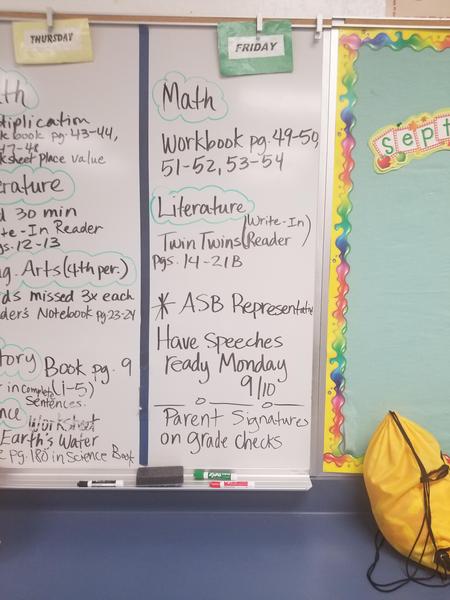 THURSDAY
th
tiplication
k book pg. 43-44,
47-48
ksheet Place value
erature
d 30 min
te-In Reader
gs. 12-13
g. Arts (4th per.)
ds missed 3x each
der's Notebook pg 23-24
tory Book pg. 9
r in complete (1-5)
Sentences.
nce Worksheet
Earth's Water
e pg. 180 in Science Book
FRIDAY
Math
Workbook pg. 49-50,
51-52, 53-54
Literature
Twin Twins (Write-In Reader)
Pgs. 14-21B
* ASB Representative
Have Speeches
ready Monday
9/10
Parent Signatures
on grade checks
Sept